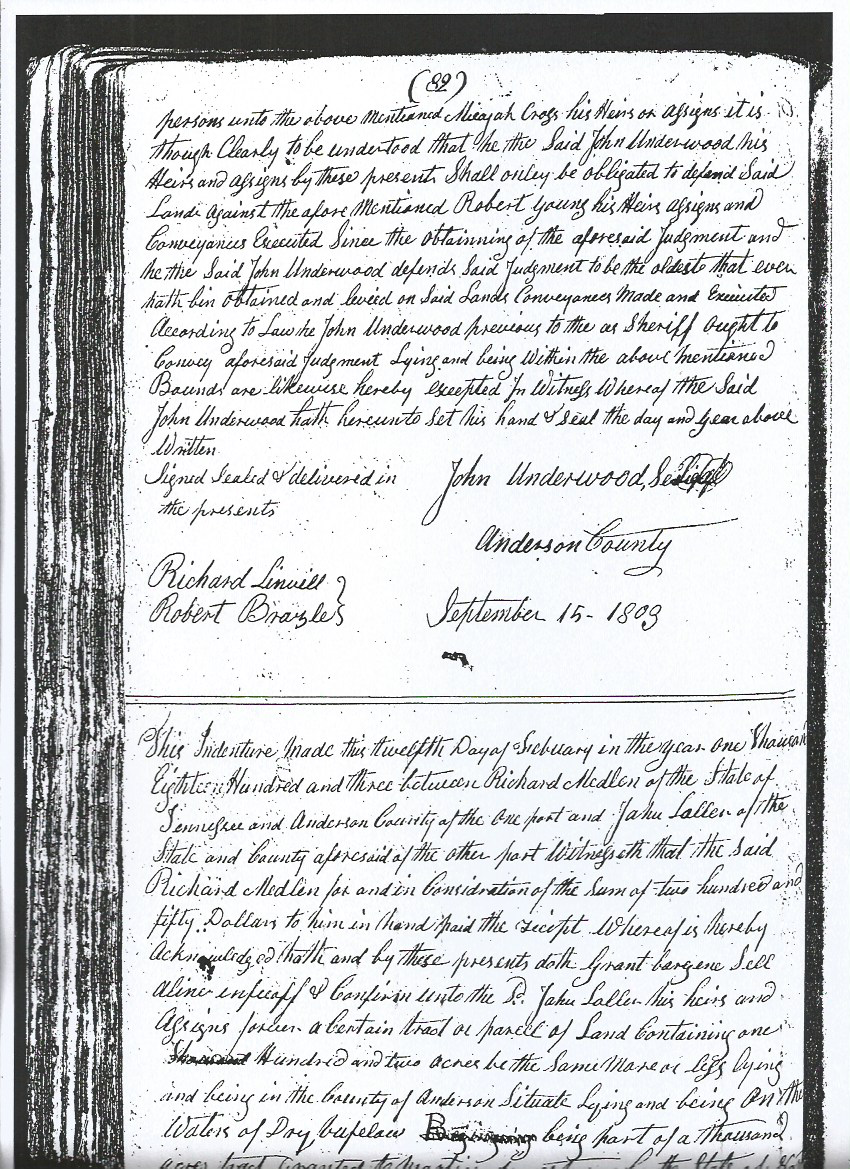 (89)
persons unto the above Mentioned Micajah Cross his Heirs or assigns it is
though Clearly to be understood that he the Said John Underwood his
Heirs and assigns by these presents Shall onley be obligated to defend Said
Land against the afore Mentioned Robert Young his Heirs assigns and
Conveyances Executed Since the obtainning of the aforesaid Judgment and
he the Said John Underwood defends Said Judgment to be the oldest that ever
hath bin obtained and levied on Said Lands Conveyances Made and Executed
According to Law he John Underwood previous to the as Sheriff ought to
Convey aforesaid Judgment Lying and being Within the above mentioned
Bounds are likewise hereby excepted In Witness Whereof the Said
John Underwood hath hereunto Set his hand & Seal the day and year above
Written
Signed Sealed & delivered in
the presents
John Underwood
Anderson County
Richard Linvill
Robert Brazle
September 15 - 1809
This Indenture Made this twelfth Day of Februory in the year one Thousan
Eighteen Hundred and three between Richard Medlen of the State of
Tennessee and Anderson County of the one port and John Laller of the
State and County aforesaid of the other port Witnesseth that the said
Richard Medlen for and in Consideration of the Sum of two hundred and
fifty Dollars to him in hand paid the receipt Whereof is hereby
Acknowledged hath and by these presents doth Grant bargene Sell
aline infeoff & Confirm unto the Sd. John Laller his heirs and
Assigns forever a Certain tract or parcel of Land Containing one
Thousand Hundred and two acres be the Same More or less lying
and being in the County of Anderson Situate Lying and being on the
Waters of Dry Bupelow Beginning being part of a thousand
acres tract Granted to